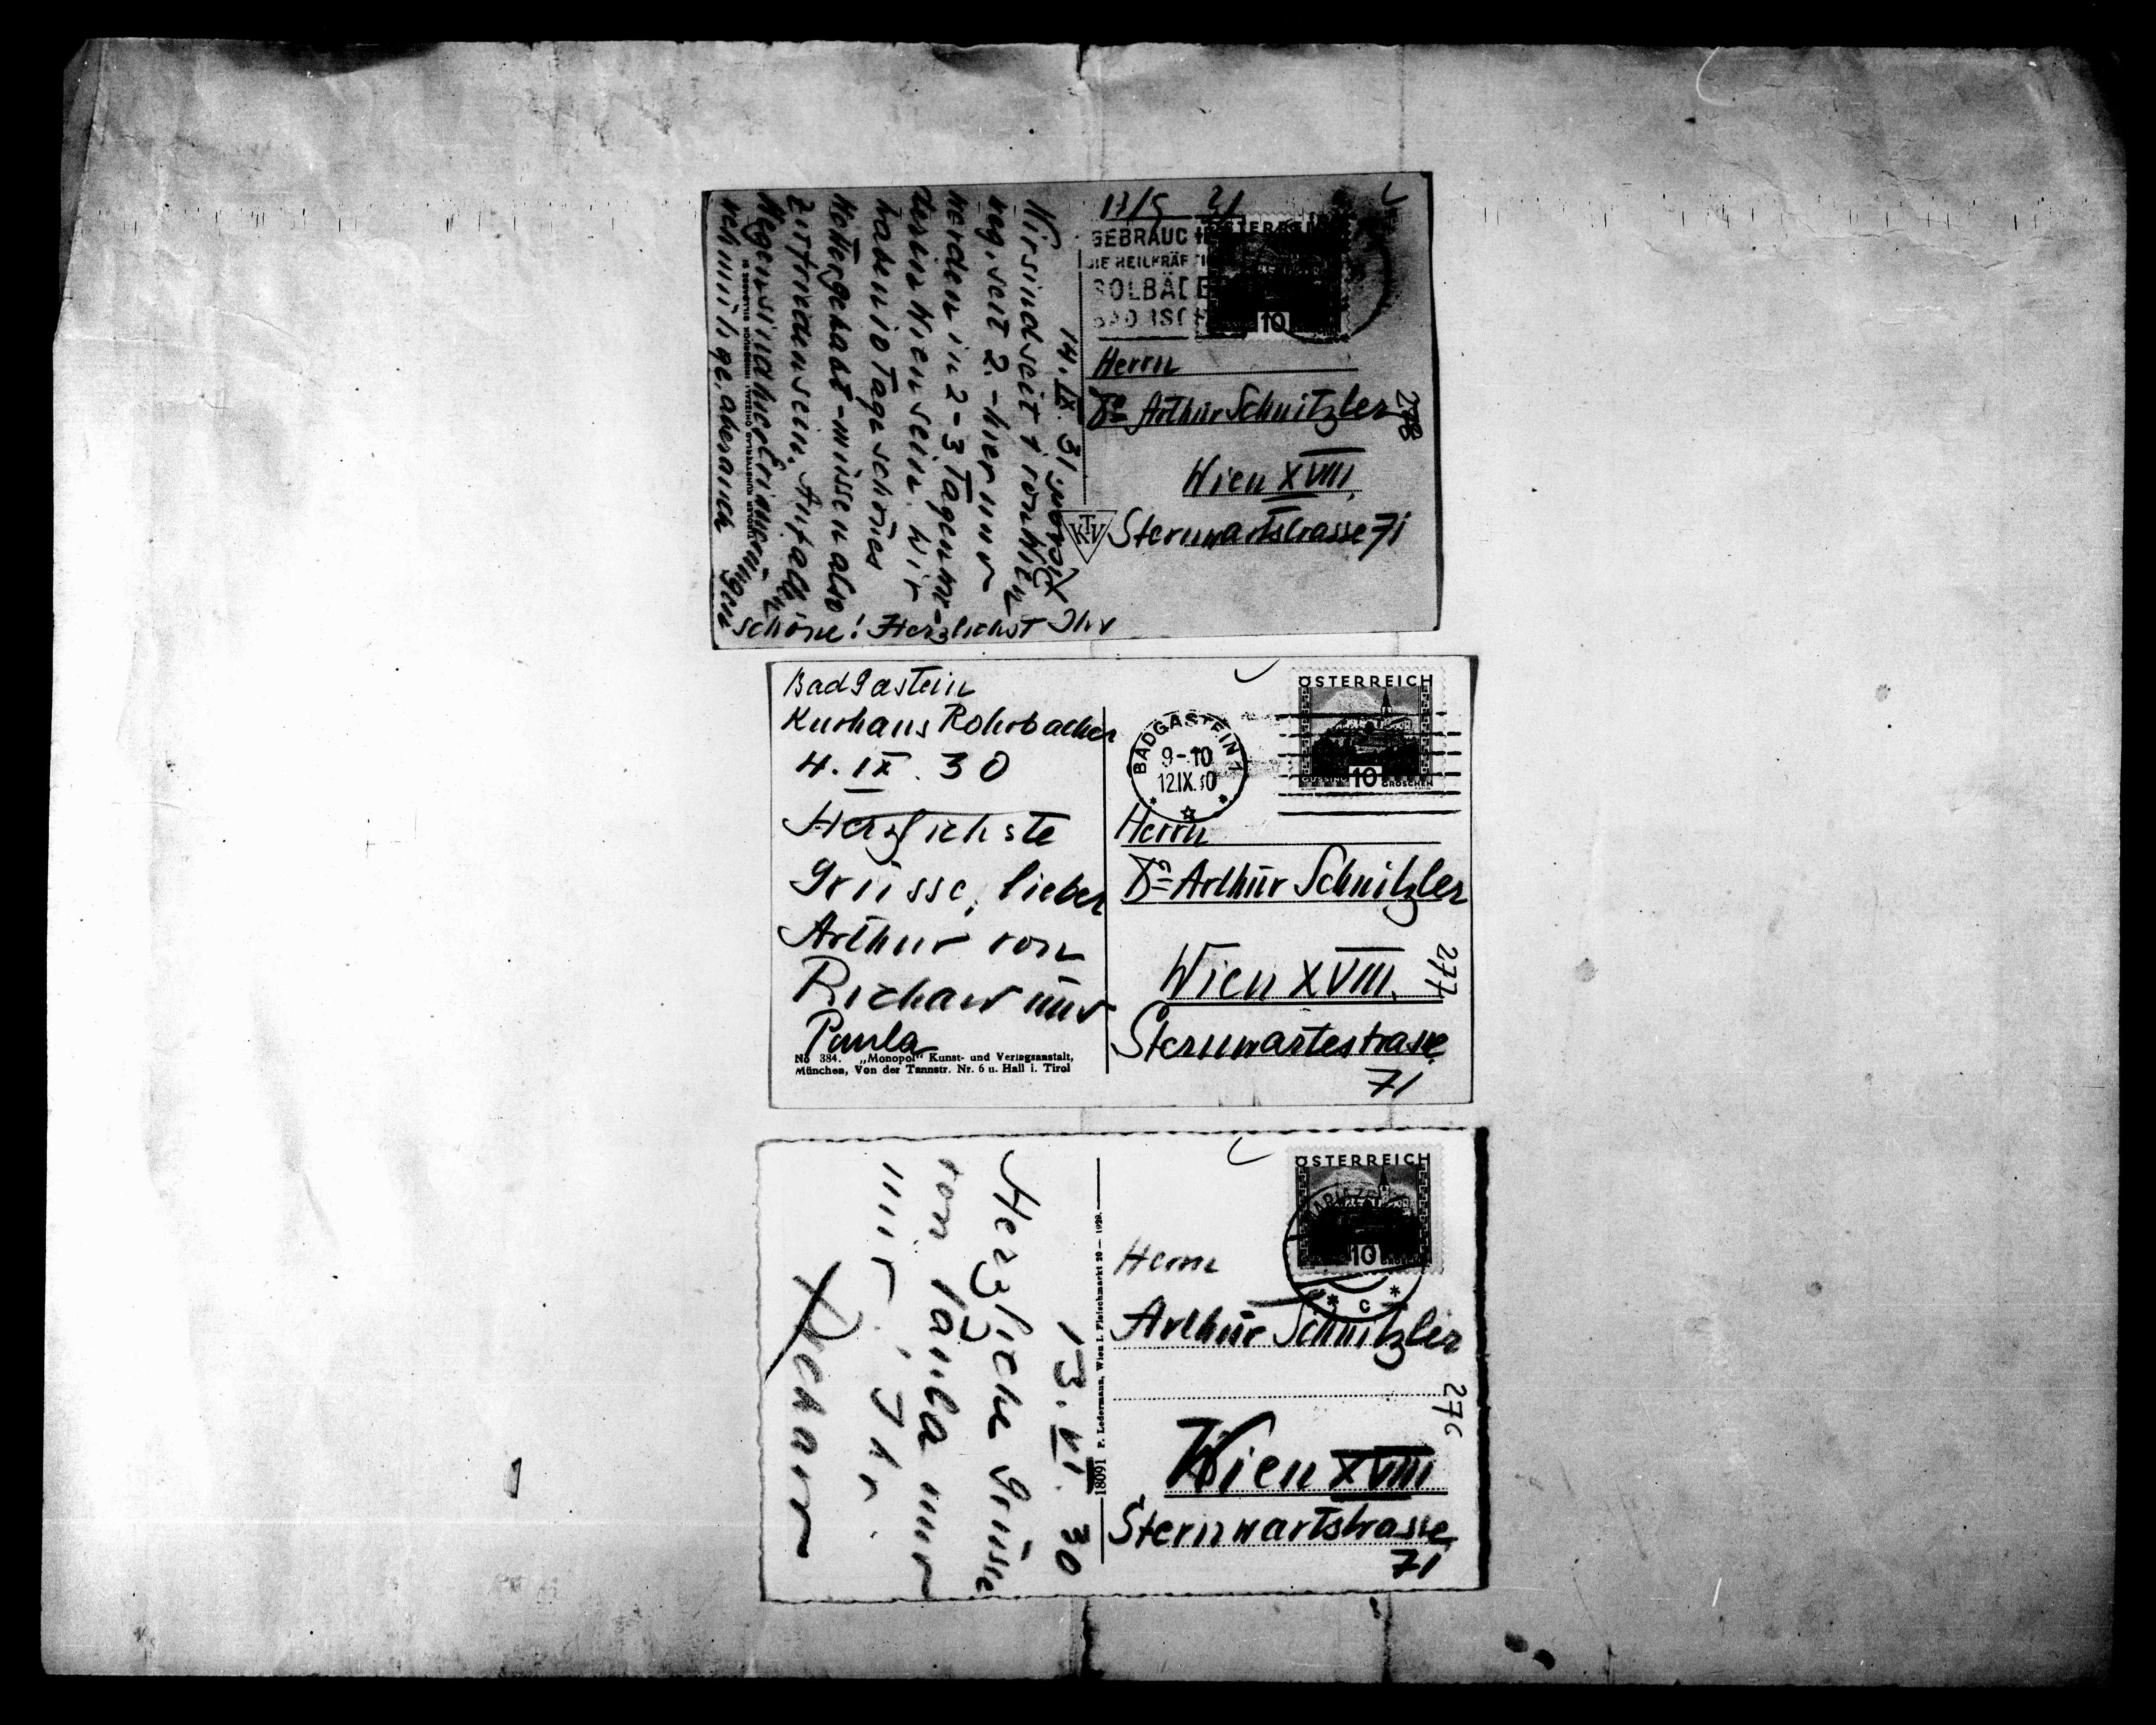 17/9 31
GEBRAUCHE
DIE HEILKRÄFTIGEN
SOLBÄDER
BAD ISCHL
ÖSTERREICH
10
Herrn
Dr Arthur Schnitzler
278
Wien XVIII.
KTV
Sternwartstrasse 71
14. IX. 31
Wir sind seit 1 von Wien
weg, seit 2.- hier und
werden in 2-3 Tagen wie-
der in Wien sein. Wir
haben 10 Tage schönes
Wetter gehabt - müssen also
zufrieden sein. Auf all
Wegen sind hier Erinnerungen
wehmütige, aber auch
schöne! Herzlichst Ihr
Richard
Badgastein
Kurhaus Rohrbacher
4. IX. 30
Herzlichste
Grüsse, lieber
Arthur von
Richard und
Paula
No 384. „Monopol“ Kunst- und Verlagsanstalt,
München, Von der Tannstr. Nr. 6 u. Hall i. Tirol
BADGASTEIN 1
9-10
12.IX.30
ÖSTERREICH
GÜSSING 10 GROSCHEN
Herrn
Dr Arthur Schnitzler
277
Wien XVIII.
Sternwartestrasse
71
13. VI. 30
Herzliche Grüsse
von Paula und
mir, Ihr
Richard
18091 P. Ledermann, Wien I. Fleischmarkt 20 — 1929.
ÖSTERREICH
MARIAZELL
10 GROSCHEN
* C *
Herrn
Arthur Schnitzler
276
Wien XVIII
Sternwartstrasse
71